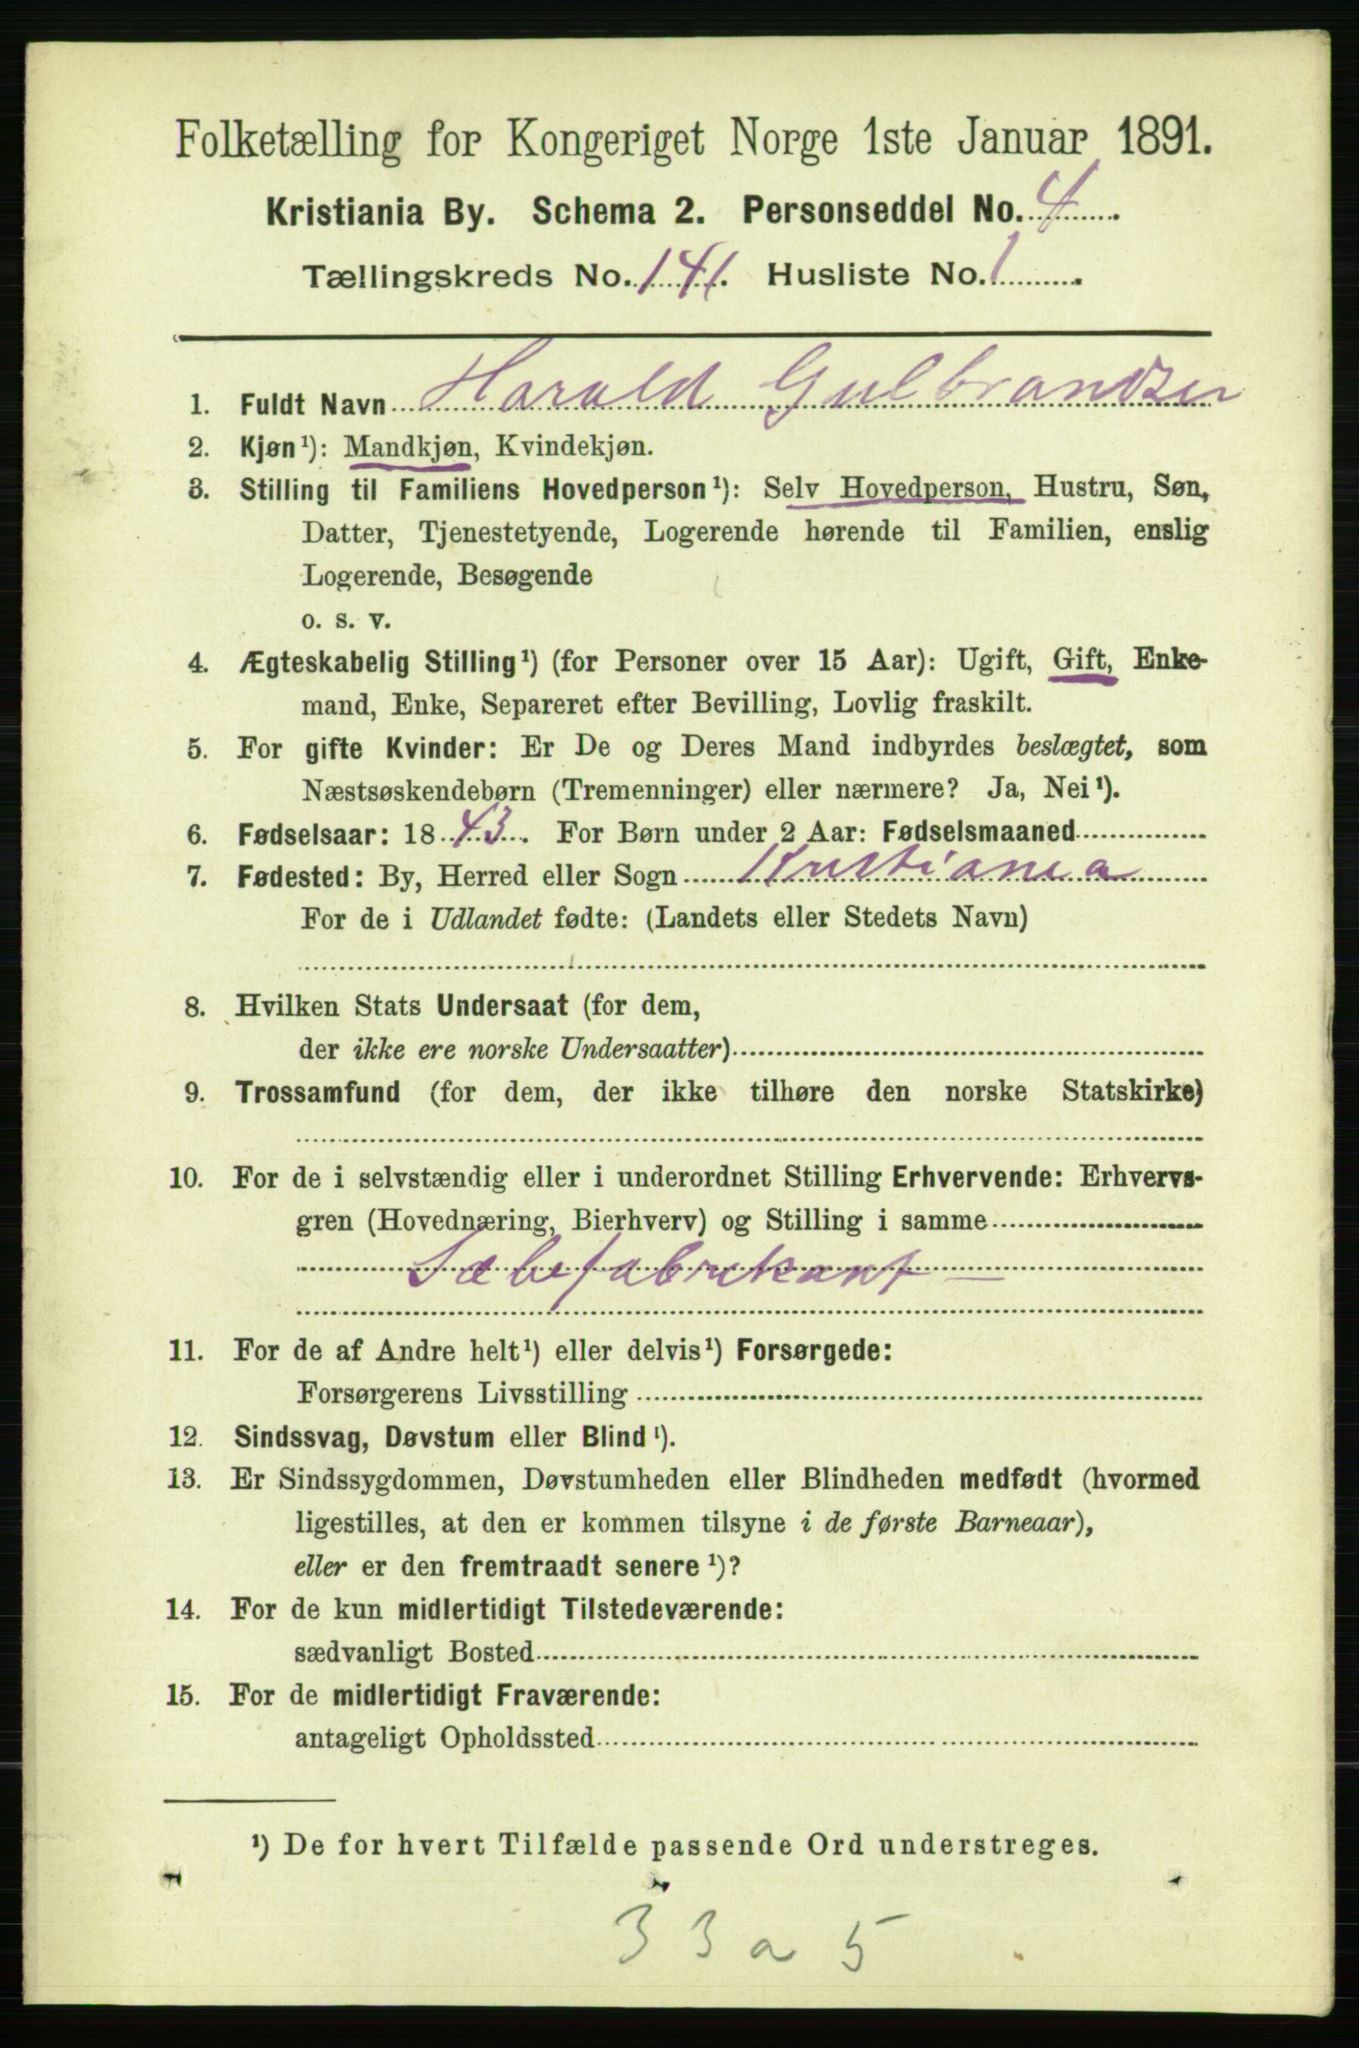 Folketælling for Kongeriget Norge 1ste Januar 1891.
Kristiania By. Schema 2. Personseddel No. 4.
Tællingskreds No. 141. Husliste No. 1.
1. Fuldt Navn Harald Gulbrandsen
2. Kjøn¹): Mandkjøn, Kvindekjøn.
3. Stilling til Familiens Hovedperson¹): Selv Hovedperson, Hustru, Søn,
Datter, Tjenestetyende, Logerende hørende til Familien, enslig
Logerende, Besøgende
o. s. v.
4. Ægteskabelig Stilling¹) (for Personer over 15 Aar): Ugift, Gift, Enke-
mand, Enke, Separeret efter Bevilling, Lovlig fraskilt.
5. For gifte Kvinder: Er De og Deres Mand indbyrdes beslægtet, som
Næstsøskendebørn (Tremenninger) eller nærmere? Ja, Nei¹).
6. Fødselsaar: 1843. For Børn under 2 Aar: Fødselsmaaned
7. Fødested: By, Herred eller Sogn Kristiania
For de i Udlandet fødte: (Landets eller Stedets Navn)
8. Hvilken Stats Undersaat (for dem,
der ikke ere norske Undersaatter)
9. Trossamfund (for dem, der ikke tilhøre den norske Statskirke)
10. For de i selvstændig eller i underordnet Stilling Erhvervende: Erhvervs-
gren (Hovednæring, Bierhverv) og Stilling i samme
Sæbefabrikant
11. For de af Andre helt¹) eller delvis¹) Forsørgede:
Forsørgerens Livsstilling
12. Sindssvag, Døvstum eller Blind¹).
13. Er Sindssygdommen, Døvstumheden eller Blindheden medfødt (hvormed
ligestilles, at den er kommen tilsyne i de første Barneaar),
eller er den fremtraadt senere¹)?
14. For de kun midlertidigt Tilstedeværende:
sædvanligt Bosted
15. For de midlertidigt Fraværende:
antageligt Opholdssted
¹) De for hvert Tilfælde passende Ord understreges.
33 a 5